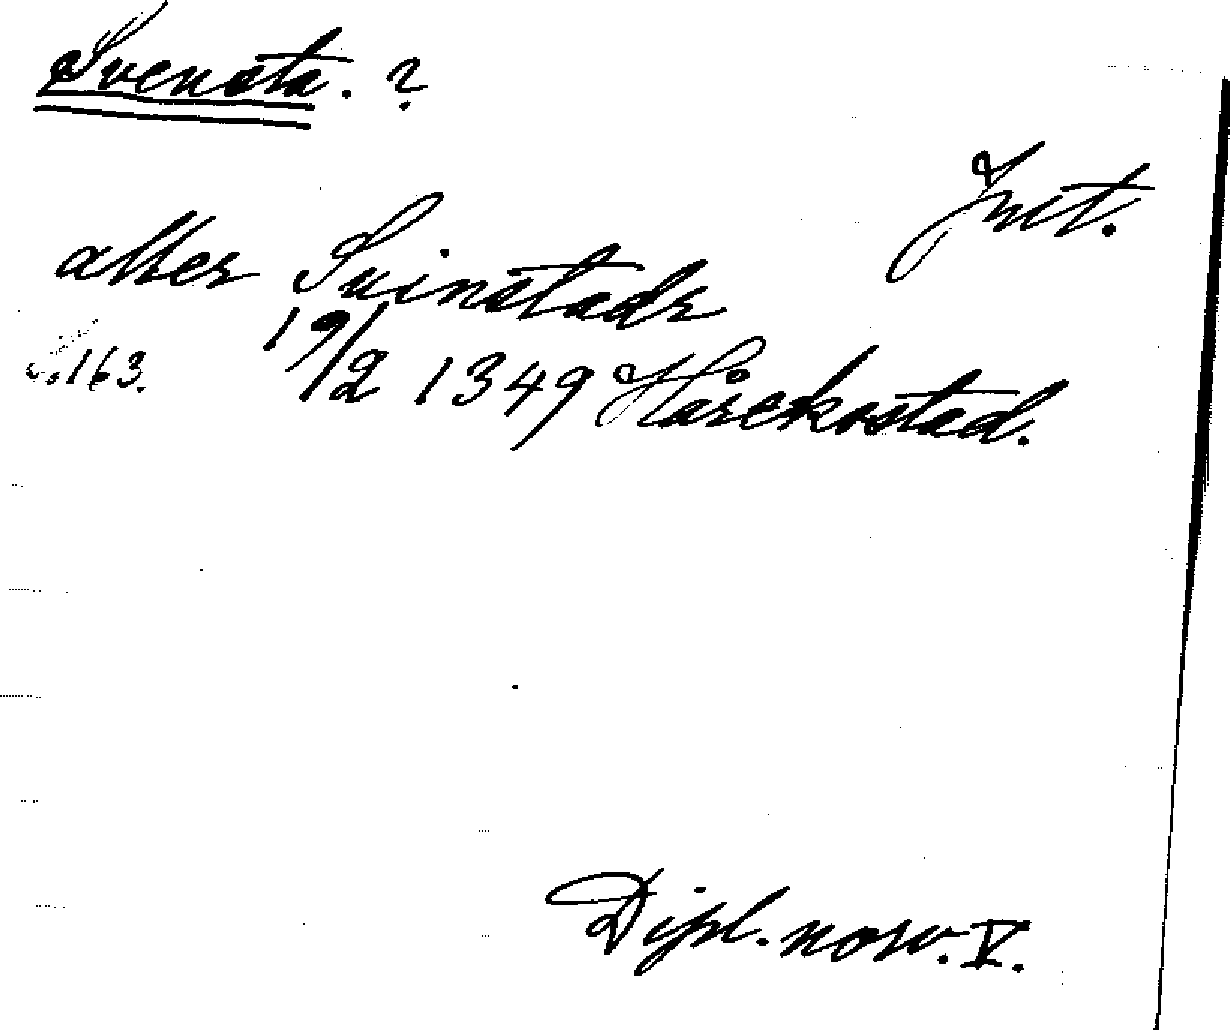 Svensta. ?
Jmt.
atter Svinstadr
s. 163. 19/2 1349 Hårekstad.
Dipl. norv. V.